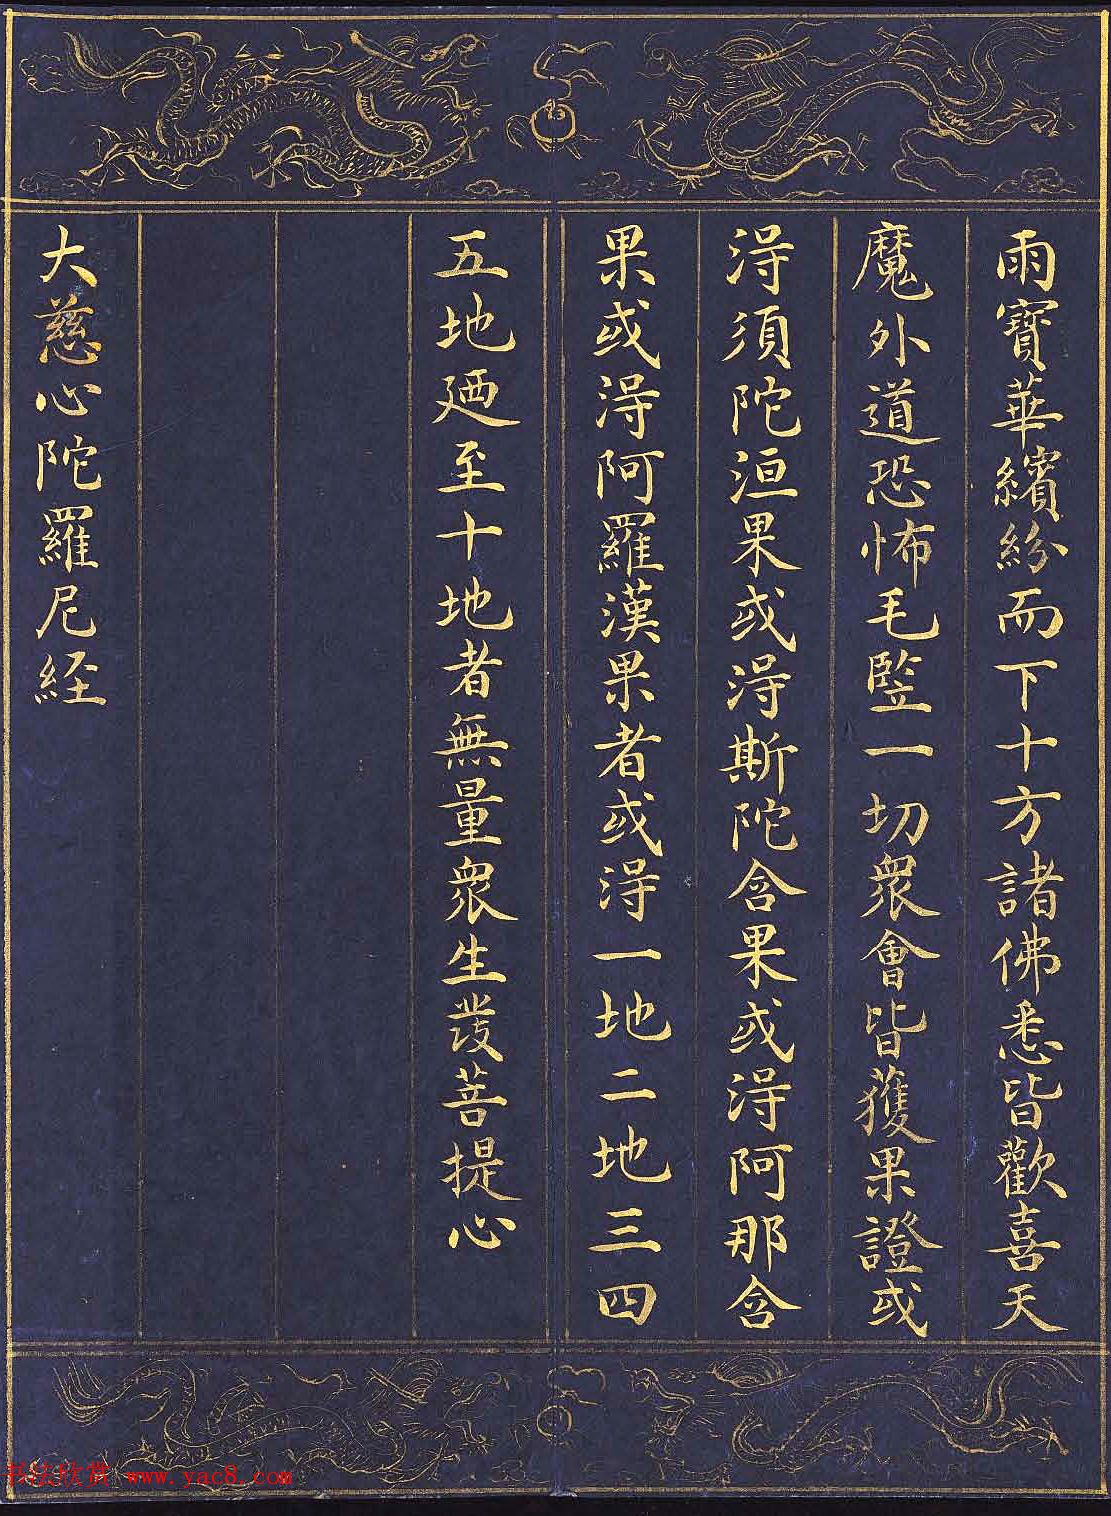 雨寶華繽紛而下十方諸佛悉皆歡喜天
魔外道恐怖毛竪一切衆會皆獲果證或
淂須陀洹果或淂斯陀含果或淂阿那含
果或淂阿羅漢果者或淂一地二地三四
五地廼至十地者無量衆生發菩提心
大慈心陀羅尼経
书法欣赏 www.yac8.com